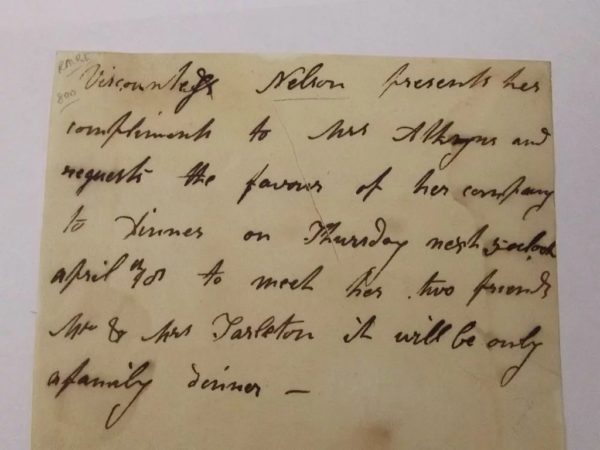 RARE
800
Viscountess Nelson presents her
compliments to Mrs Atkyns and
requests the favour of her company
to Dinner on Thursday next 5 oclock
april th 8 to meet her two friends
Mr & Mrs Tarleton it will be only
a family dinner –